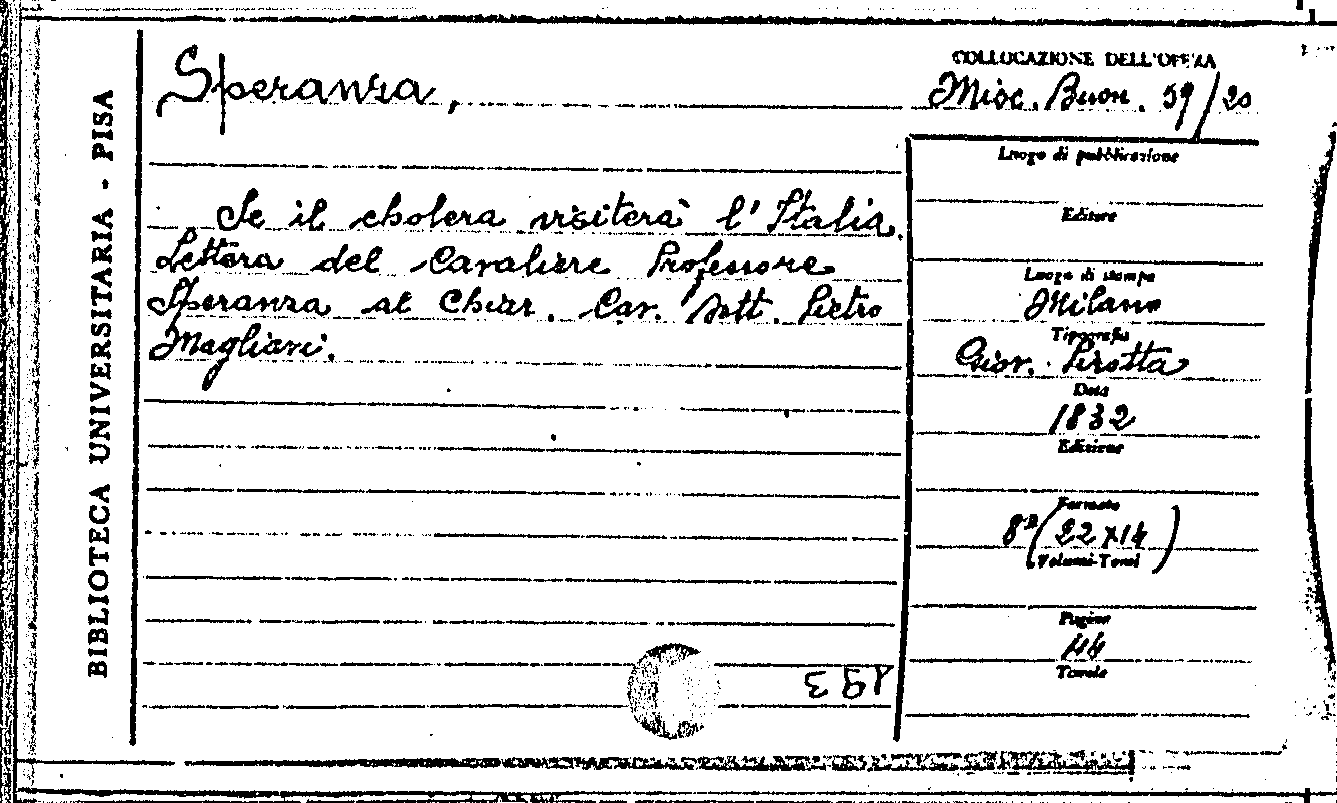 BIBLIOTECA UNIVERSITARIA - PISA
Speranza,
Se il cholera visiterà l'Italia.
Lettera del Cavaliere Professore
Speranza al Chiar. Cav. Dott. Pietro
Magliari.
COLLOCAZIONE DELL'OPERA
Misc. Buon. 59/20
Luogo di pubblicazione
Editore
Luogo di stampa
Milano
Tipografia
Giov. Pirotta
Data
1832
Edizione
Formato
8° (22 x 14)
Volumi-Tomi
Pagine
44
Tavole